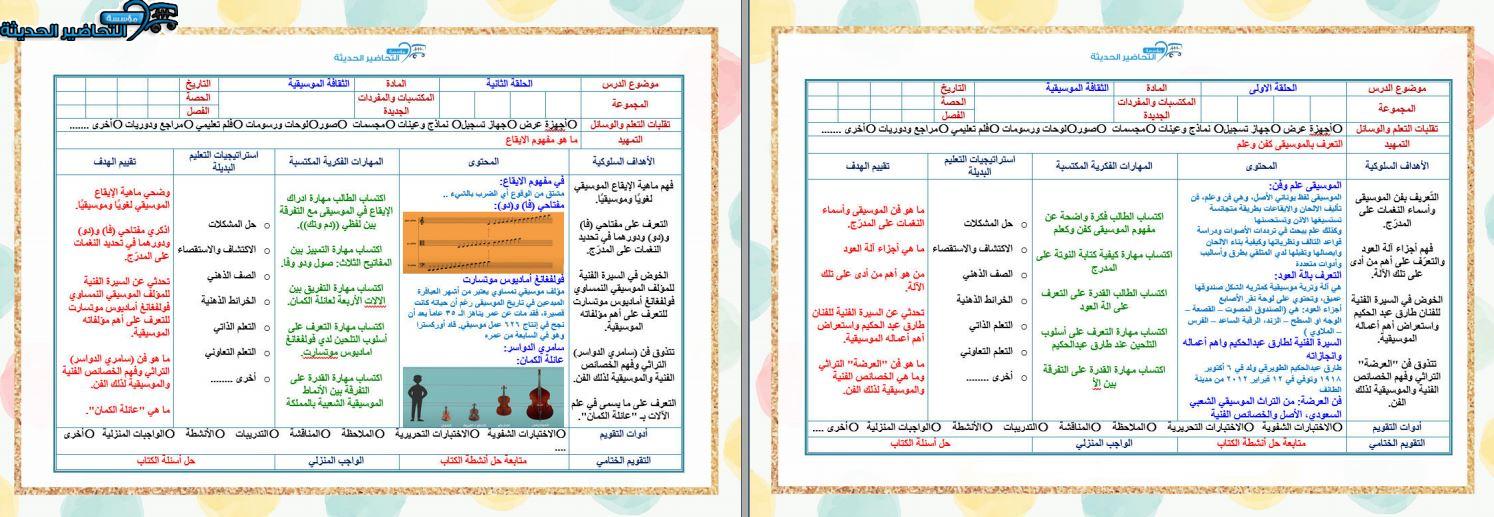 مؤسسة
التحاضير الحديثة
مؤسسة
التحاضير الحديثة
موضوع الدرس
الحلقة الاولى
المادة
الثقافة الموسيقية
التاريخ
المجموعة
المكتسبات والمفردات
الجديدة
الحصة
الفصل
تقليات التعلم والوسائل
Oأجهزة عرض Oجهاز تسجيلO نماذج وعينات Oمجسمات OصورOلوحات ورسومات Oفلم تعليمي Oمراجع ودوريات Oأخرى .......
التمهيد
التعرف بالموسيقى كفن وعلم
الأهداف السلوكية
المحتوى
المهارات الفكرية المكتسبة
استراتيجيات التعليم
البديلة
تقييم الهدف
التّعريف بفن الموسيقى
وأسماء النغمات على
المدرّج.
فهم أجزاء آلة العود
والتعرّف على أهم من أدى
على تلك الآلة.
الخوض في السيرة الفنية
للفنان طارق عبد الحكيم
واستعراض أهم أعماله
الموسيقية.
تتذوق فن "العرضة"
التراثي وفهم الخصائص
الفنية والموسيقية لذلك
الفن.
الموسيقى علم وفن:
الموسيقى لفظ يوناني الأصل، وهي فن وعلم، فن
تأليف الألحان والإيقاعات بطريقة متجانسة
تستسيغها الأذن وتستحسنها
وكذلك علم يبحث في ترددات الأصوات ودراسة
قواعد التآلف ونظرياتها وكيفية بناء الالحان
وايصالها وتقبلها لدي المتلقي بطرق وأساليب
وأدوات متعددة
التعرف بآلة العود:
هي آلة وترية موسيقية كمثريه الشكل صندوقها
عميق، وتحتوي على لوحة نقر الأصابع
أجزاء العود: هي (الصندوق المصوت – القصعة –
الوجه او السطح – الزند، الرقبة الساعد – الفرس
– الملاوي )
السيرة الفنية لطارق عبدالحكيم واهم أعماله
وانجازاته
طارق عبدالحكيم الطويرقي ولد في ٦ أكتوبر
١٩١٨ وتوفي في ١٢ فبراير ٢٠١٢ من مدينة
الطائف
فن العرضة: من التراث الموسيقي الشعبي
السعودي، الأصل والخصائص الفنية
اكتساب الطالب فكرة واضحة عن
مفهوم الموسيقى كفن وكعلم
اكتساب مهارة كيفية كتابة النوتة على
المدرج
اكتساب الطالب القدرة على التعرف
على الة العود
اكتساب مهارة التعرف على أسلوب
التلحين عند طارق عبدالحكيم
اكتساب مهارة القدرة على التفرقة
بين الأ
o حل المشكلات
o الاكتشاف والاستقصاء
o الصف الذهني
o الخرائط الذهنية
o التعلم الذاتي
o التعلم التعاوني
o أخرى ........
ما هو فن الموسيقى وأسماء
النغمات على المدرّج.
ما هي أجزاء آلة العود
من هو أهم من أدى على تلك
الآلة.
تحدثي عن السيرة الفنية للفنان
طارق عبد الحكيم واستعراض
أهم أعماله الموسيقية.
ما هو فن "العرضة" التراثي
وما هي الخصائص الفنية
والموسيقية لذلك الفن.
أدوات التقويم
Oالاختبارات الشفوية Oالاختبارات التحريرية Oالملاحظة Oالمناقشة Oالتدريبات Oالأنشطة Oالواجبات المنزلية Oأخرى ....
التقويم الختامي
متابعة حل أنشطة الكتاب
الواجب المنزلي
حل أسئلة الكتاب
مؤسسة
التحاضير الحديثة
موضوع الدرس
الحلقة الثانية
المادة
الثقافة الموسيقية
التاريخ
المجموعة
المكتسبات والمفردات
الجديدة
الحصة
الفصل
تقليات التعلم والوسائل
Oأجهزة عرض Oجهاز تسجيلO نماذج وعينات Oمجسمات OصورOلوحات ورسومات Oفلم تعليمي Oمراجع ودوريات Oأخرى .......
التمهيد
ما هو مفهوم الايقاع
الأهداف السلوكية
المحتوى
المهارات الفكرية المكتسبة
استراتيجيات التعليم
البديلة
تقييم الهدف
فهم ماهية الإيقاع الموسيقي
لغويًا وموسيقيًا.
التعرف على مفتاحي (فا)
و(دو) ودورهما في تحديد
النغمات على المدرّج.
الخوض في السيرة الفنية
للمؤلف الموسيقي النمساوي
فولفغانغ أماديوس موتسارت
للتعرف على أهم مؤلفاته
الموسيقية.
تتذوق فن (سامري الدواسر)
التراثي وفهم الخصائص
الفنية والموسيقية لذلك الفن.
التعرف على ما يسمى في علم
الآلات بـ "عائلة الكمان".
في مفهوم الايقاع:
مشتق من الوقوع أي الضرب بالشيء ..
مفتاحي (فا) و(دو):
فولفغانغ أماديوس موتسارت
مؤلف موسيقي نمساوي يعتبر من أشهر العباقرة
المبدعين في تاريخ الموسيقى رغم أن حياته كانت
قصيرة، فقد مات عن عمر يناهز الـ ٣٥ عاماً بعد أن
نجح في إنتاج ٦٢٦ عمل موسيقي. قاد أوركسترا
وهو في السابعة من عمره
سامري الدواسر:
عائلة الكمان:
اكتساب الطالب مهارة ادراك
الإيقاع في الموسيقى مع التفرقة
بين لفظي ((دم وتك)).
اكتساب مهارة التمييز بين
المفاتيح الثلاث: صول ودو وفا.
اكتساب مهارة التفريق بين
الالات الأربعة لعائلة الكمان.
اكتساب مهارة التعرف على
أسلوب التلحين لدي فولفغانغ
اماديوس موتسارت.
اكتساب مهارة القدرة على
التفرقة بين الأنماط
الموسيقية الشعبية بالمملكة
o حل المشكلات
o الاكتشاف والاستقصاء
o الصف الذهني
o الخرائط الذهنية
o التعلم الذاتي
o التعلم التعاوني
o أخرى ........
وضحي ماهية الإيقاع
الموسيقي لغويًا وموسيقيًا.
اذكري مفتاحي (فا) و(دو)
ودورهما في تحديد النغمات
على المدرّج.
تحدثي عن السيرة الفنية
للمؤلف الموسيقي النمساوي
فولفغانغ أماديوس موتسارت
للتعرف على أهم مؤلفاته
الموسيقية.
ما هو فن (سامري الدواسر)
التراثي وفهم الخصائص الفنية
والموسيقية لذلك الفن.
ما هي "عائلة الكمان".
أدوات التقويم
Oالاختبارات الشفوية Oالاختبارات التحريرية Oالملاحظة Oالمناقشة Oالتدريبات Oالأنشطة Oالواجبات المنزلية Oأخرى
....
التقويم الختامي
متابعة حل أنشطة الكتاب
الواجب المنزلي
حل أسئلة الكتاب